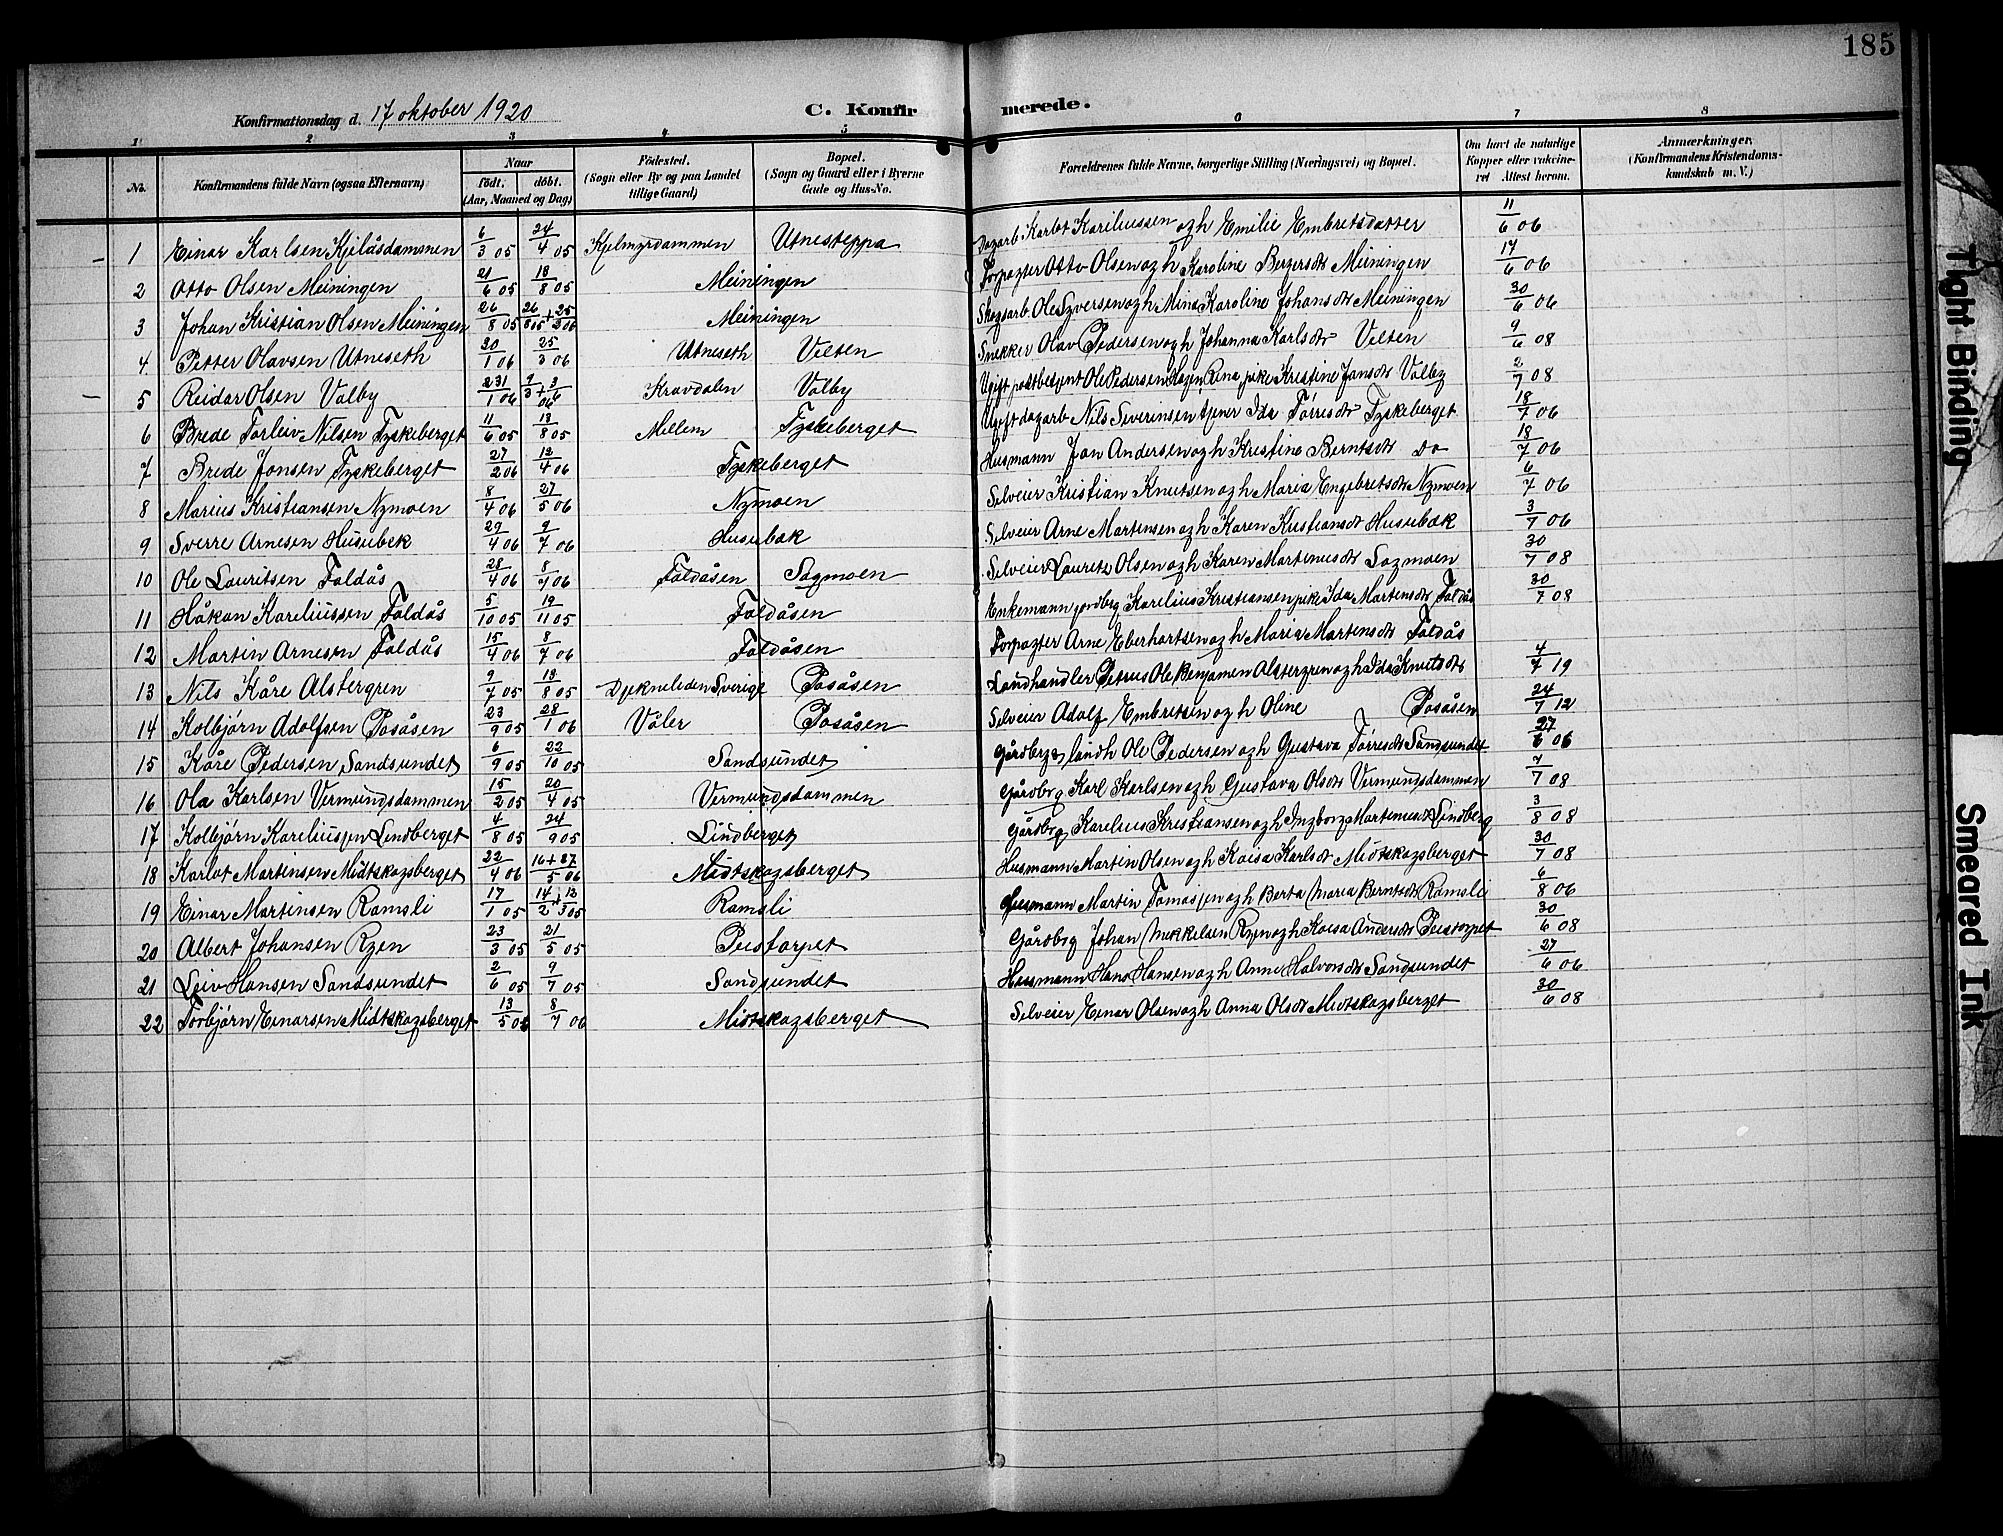 185
Konfirmationsdag d. 17 oktober 1920 C. Konfirmerede.
1 2 3 4 5 6 7 8
No. Konfirmandens fulde Navn (ogsaa Efternavn) Naar født, døbt. (Aar, Maaned og Dag) Fødested. (Sogn eller By og paa Landet tillige Gaard) Bopæl. (Sogn og Gaard eller i Byerne Gade og Hus-No. Forældrenes fulde Navne, borgerlige Stilling (Næringsvei) og Bopæl. Om havt de naturlige Kopper eller vakcineret. Attest herom. Anmærkninger. (Konfirmandens Kristendomskundskab m. V.)
1 Einar Karlsen Kjelåsdammen 6/3 05 24/4 05 Kjelmyrdammen Utnesteppa Dagarb. Karlot Kareliussen og h Emilie Embretsdatter 11/6 06
2 Otto Olsen Meiningen 21/6 05 18/8 05 Meiningen Forpagter Otto Olsen og h Karoline Bergersdr Meiningen 17/6 06
3 Johan Kristian Olsen Meiningen 26/8 05 Meiningen Skogsarb Ole Syversen og h Mina Karoline Johansdr Meiningen 30/6 06
4 Petter Olavsen Utneseth 30/1 06 25/3 06 Utneseth Velten Snekker Olav Pedersen og h Johanna Karlsdr Velten 9/6 08
5 Reidar Olsen Valby Kravdalen Valby Ugift postbetjent Ole Pedersen Hagen Rena, pike Kristine Jonsdr Valby 2/7 08
6 Brede Torleiv Nilsen Tyskeberget 11/6 05 13/8 05 Mellem Tyskeberget Ugift dagarb Nils Severinsen tjener Ida Törresdr Tyskeberget 18/7 06
7 Brede Jonsen Tyskeberget 27/2 06 12/4 06 Tyskeberget Husmann Jon Andersen og h Kristine Berntsdr Do 18/7 06
8 Marius Kristiansen Nymoen 8/4 06 27/5 06 Nymoen Selveier Kristian Knutsen og h Maria Engebretsdr Nymoen 6/7 06
9 Sverre Arnesen Husubek 29/4 06 9/7 06 Husubæk Selveier Arne Martensen og h Karen Kristiansdr Husubæk 3/7 06
10 Ole Lauritsen Faldås 28/4 06 8/7 06 Faldåsen Sagmoen Selveier Lauritz Olsen og h Karen Martinusdr Sagmoen 30/7 08
11 Håkon Kareliussen Faldås 5/10 05 19/11 05 Faldåsen Enkemann jordbrg Karelius Kristiansen pike Ida Martensdr Faldås 30/7 08
12 Martin Arnesen Faldås 15/4 06 8/7 06 Faldåsen Forpagter Arne Eberhartsen og h Maria Martensdr Faldås
13 Nils Kåre Alstergren 9/7 05 13/8 05 Djekneliden Sverige Posåsen Landhandler Petrus Ole Benjamen Alstergren og h Ida Knutsdr 4/7 19
14 Kolbjørn Adolfsen Posåsen 23/9 05 28/1 06 Våler Posåsen Selveier Adolf Embretsen og h Oline Posåsen 24/7 12
15 Kåre Pedersen Sandsundet 6/9 05 22/10 05 Sandsundet Gårdbrg & landh Ole Pedersen og h Gustava Törresdr Sandsundet 27/6 06
16 Ola Karlsen Vermundsdammen 15/2 05 20/4 05 Vermundsdammen Gårdbrg Karl Karlsen og h Gustava Olsdr Vermundsdammen 7/7 08
17 Kolbjørn Kareliussen Lindberget 4/8 05 24/9 05 Lindberget Gårdbrg Karelius Kristiansen og h Ingborg Martinusdr Lindberg 3/8 08
18 Karlot Martinsen Midtskogsberget 22/4 06 16+27/5 06 Midtskogsberget Husmann Martin Olsen og h Kaisa Karlsdr Midtskogsberget 30/7 08
19 Einar Martinsen Ramsli 17/1 05 Ramsli Husmann Martin Tomassen og h Berta Maria Berntsdr Ramsli 6/8 06
20 Albert Johansen Ryen 23/3 05 21/5 05 Peistorpet Gårdbrg Johan Mikkelsen Ryen og h Kaisa Andersdr Peistorpet 30/6 08
21 Leiv Hansen Sandsundet 2/6 05 9/7 05 Sandsundet Husmann Hans Hansen og h Anne Halvorsdr Sandsundet 27/6 06
22 Torbjørn Einarsen Midtskogsberget 13/5 06 8/7 06 Midtskogsberget Selveier Einar Olsen og h Anna Olsdr Midtskogsberget 30/6 08
Tight Binding
Smeared Ink